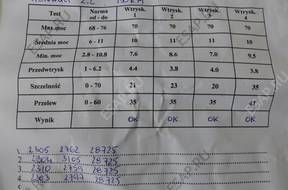 2.2
Test Norma od - do Wtrysk. 1 Wtrysk. 2 Wtrysk. 3 Wtrysk. 4
Max. moc 68 - 76 70 70 70 70
Średnia moc 6 - 11 10 11 10 10
Min. moc 2.8 - 10.8 7.6 8.6 7.0 9.5
Przedwtrysk 1 - 6.2 4.4 3.8 4.0 3.8
Szczelność 0 - 70 21 23 20 35
Przelew 0 - 60 35 35 35 35
Wynik OK OK OK OK
1. 2305 2762 28725
2. 2304 3105 28725
3. 2310 2759 28725
4. 2303 2797 28725